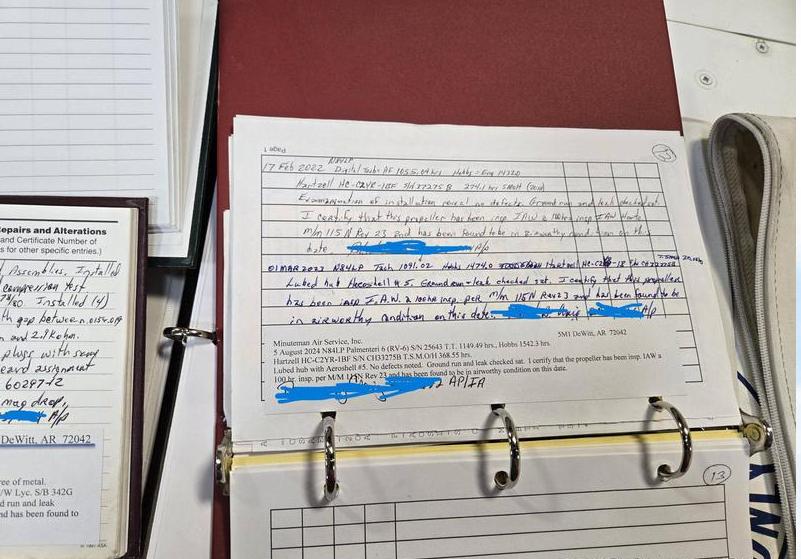 Repairs and Alterations
and Certificate Number of
s for other specific entries.)
Installed
compression test
Installed (4)
gap between
and
plugs with
60297-12
mag drop,
A/p
DeWitt, AR 72042
ree of metal.
/W Lyc. S/B 342G
d run and leak
nd has been found to
Page 1
17 Feb 2022 N84LP Digital Tach: 1055.04 hrs Hobbs
Hartzell HC-C2YR-1BF 274.1 hrs SMOH
Examination of installation reveal no defects. Ground run and leak checked sat.
I certify that this propeller has been insp IAW a 100hr insp IAW
m/m 115 N Rev 23 and has been found to be in airworthy condition on this
date. A/p
01 MAR 2023 N84LP Tach 1091.02 Hobbs 1474.0 Hartzell
Lubed hub w/ Aeroshell # 5. Ground run + leak checked sat. I certify that this propeller
has been insp I.A.W. a 100hr insp. per m/m 115N Rev 23 and has been found to be
in airworthy condition on this date. A/p
Minuteman Air Service, Inc. 5M1 DeWitt, AR 72042
5 August 2024 N84LP Palmenteri 6 (RV-6) S/N 25643 T.T. 1149.49 hrs., Hobbs 1542.3 hrs.
Hartzell HC-C2YR-1BF S/N CH3275B T.S.M.O/H 368.55 hrs.
Lubed hub with Aeroshell #5. No defects noted. Ground run and leak checked sat. I certify that the propeller has been insp. IAW a
100 hr. insp. per M/M 115N Rev 23 and has been found to be in airworthy condition on this date.
AP/IA
13